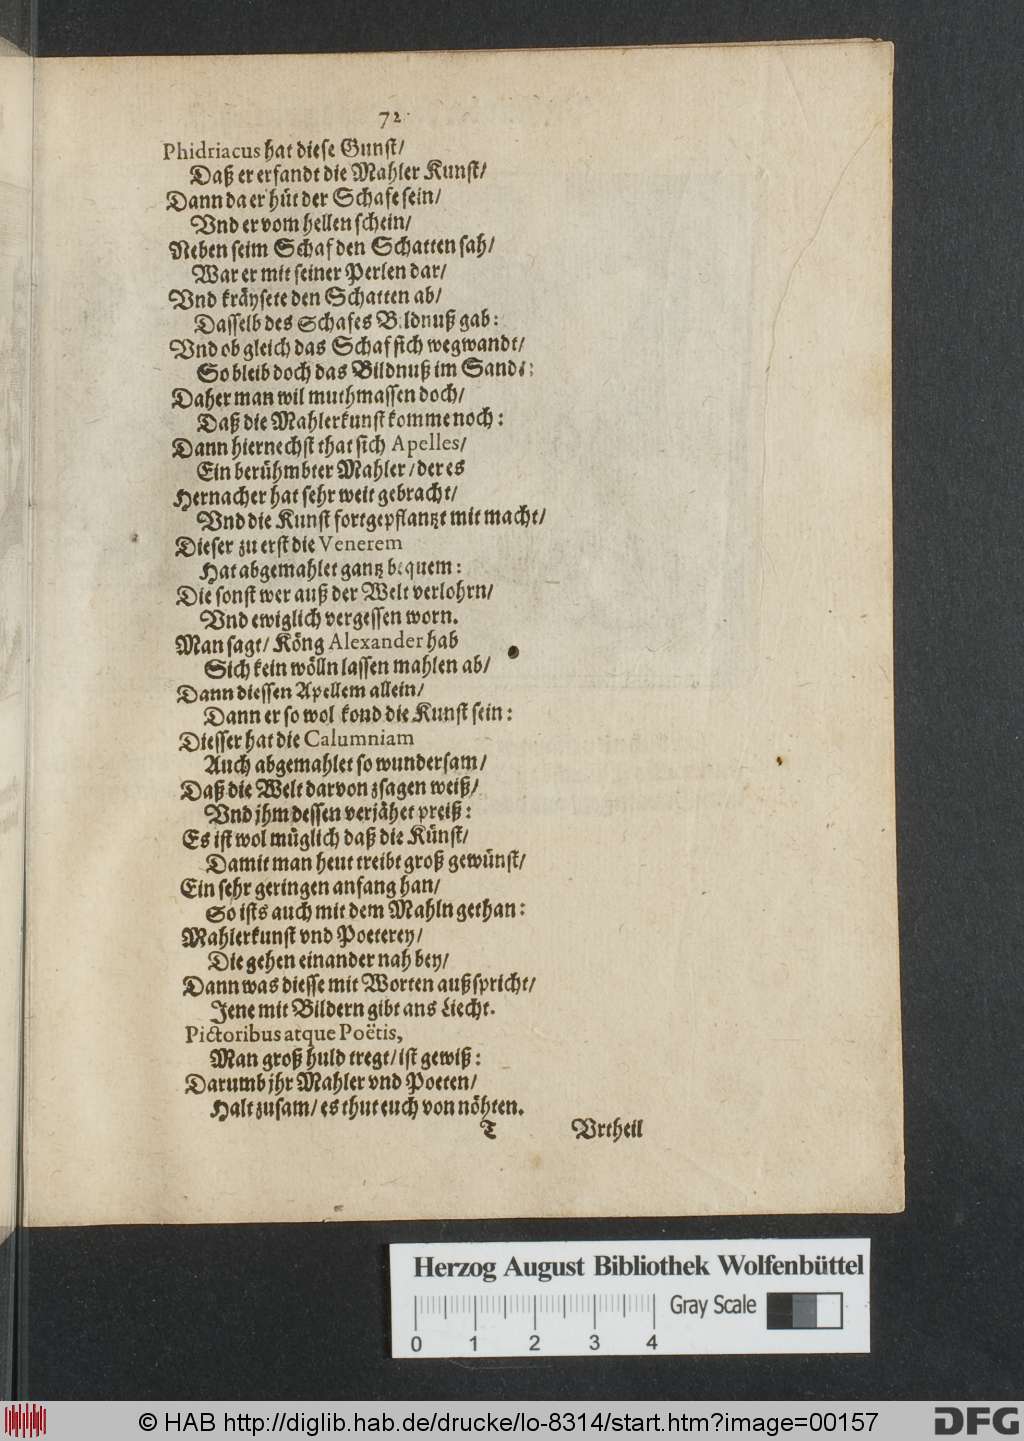 72
Phidriacus hat diese Gunst/
Daß er erfandt die Mahler Kunst/
Dann da er hüt der Schafe sein/
Vnd er vom hellen schein/
Neben seim Schaf den Schatten sah/
War er mit seiner Perlen dar/
Vnd kräysete den Schatten ab/
Dasselb des Schafes Bildnuß gab:
Vnd ob gleich das Schaf sich wegwandt/
So bleib doch das Bildnuß im Sand:
Daher man wil muthmassen doch/
Daß die Mahlerkunst komme noch:
Dann hiernechst that sich Apelles/
Ein berühmbter Mahler/ der es
Hernacher hat sehr weit gebracht/
Vnd die Kunst fortgepflantzt mit macht/
Dieser zu erst die Venerem
Hat abgemahlet gantz bequem:
Die sonst wer auß der Welt verlohrn/
Vnd ewiglich vergessen worn.
Man sagt/ Köng Alexander hab
Sich kein wölln lassen mahlen ab/
Dann diessen Apellem allein/
Dann er so wol kond die Kunst sein:
Diesser hat die Calumniam
Auch abgemahlet so wundersam/
Daß die Welt darvon zsagen weiß/
Vnd jhm dessen verjähet preiß:
Es ist wol müglich daß die Künst/
Damit man heut treibt groß gewünst/
Ein sehr geringen anfang han/
So ists auch mit dem Mahln gethan:
Mahlerkunst vnd Poeterey/
Die gehen einander nah bey/
Dann was diesse mit Worten außspricht/
Jene mit Bildern gibt ans Liecht.
Pictoribus atque Poëtis,
Man groß huld tregt/ ist gewiß:
Darumb jhr Mahler vnd Poeten/
Halt zusam/ es thut euch von nöhten.
T Vrtheil
Herzog August Bibliothek Wolfenbüttel
Gray Scale
0 1 2 3 4
© HAB http://diglib.hab.de/drucke/lo-8314/start.htm?image=00157
DFG